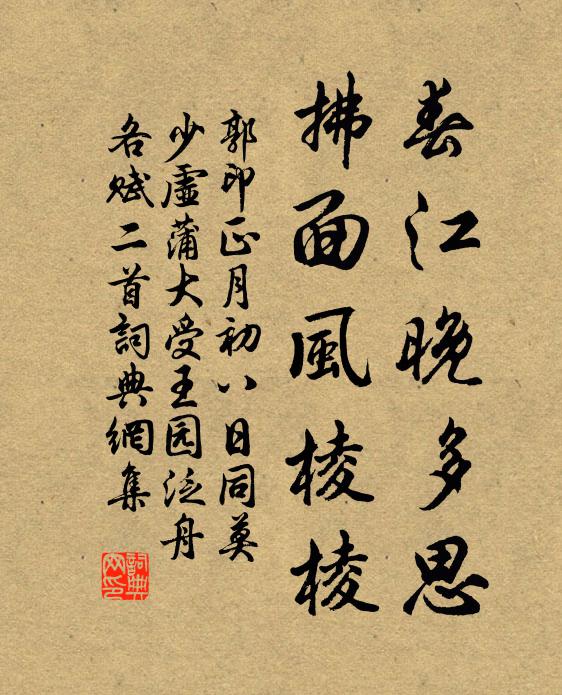 春江晚多思
拂面風棱棱
郭印正月初八日同莫
少虛蒲大受王园泛舟
各赋二首詞典網集
詞典
网印